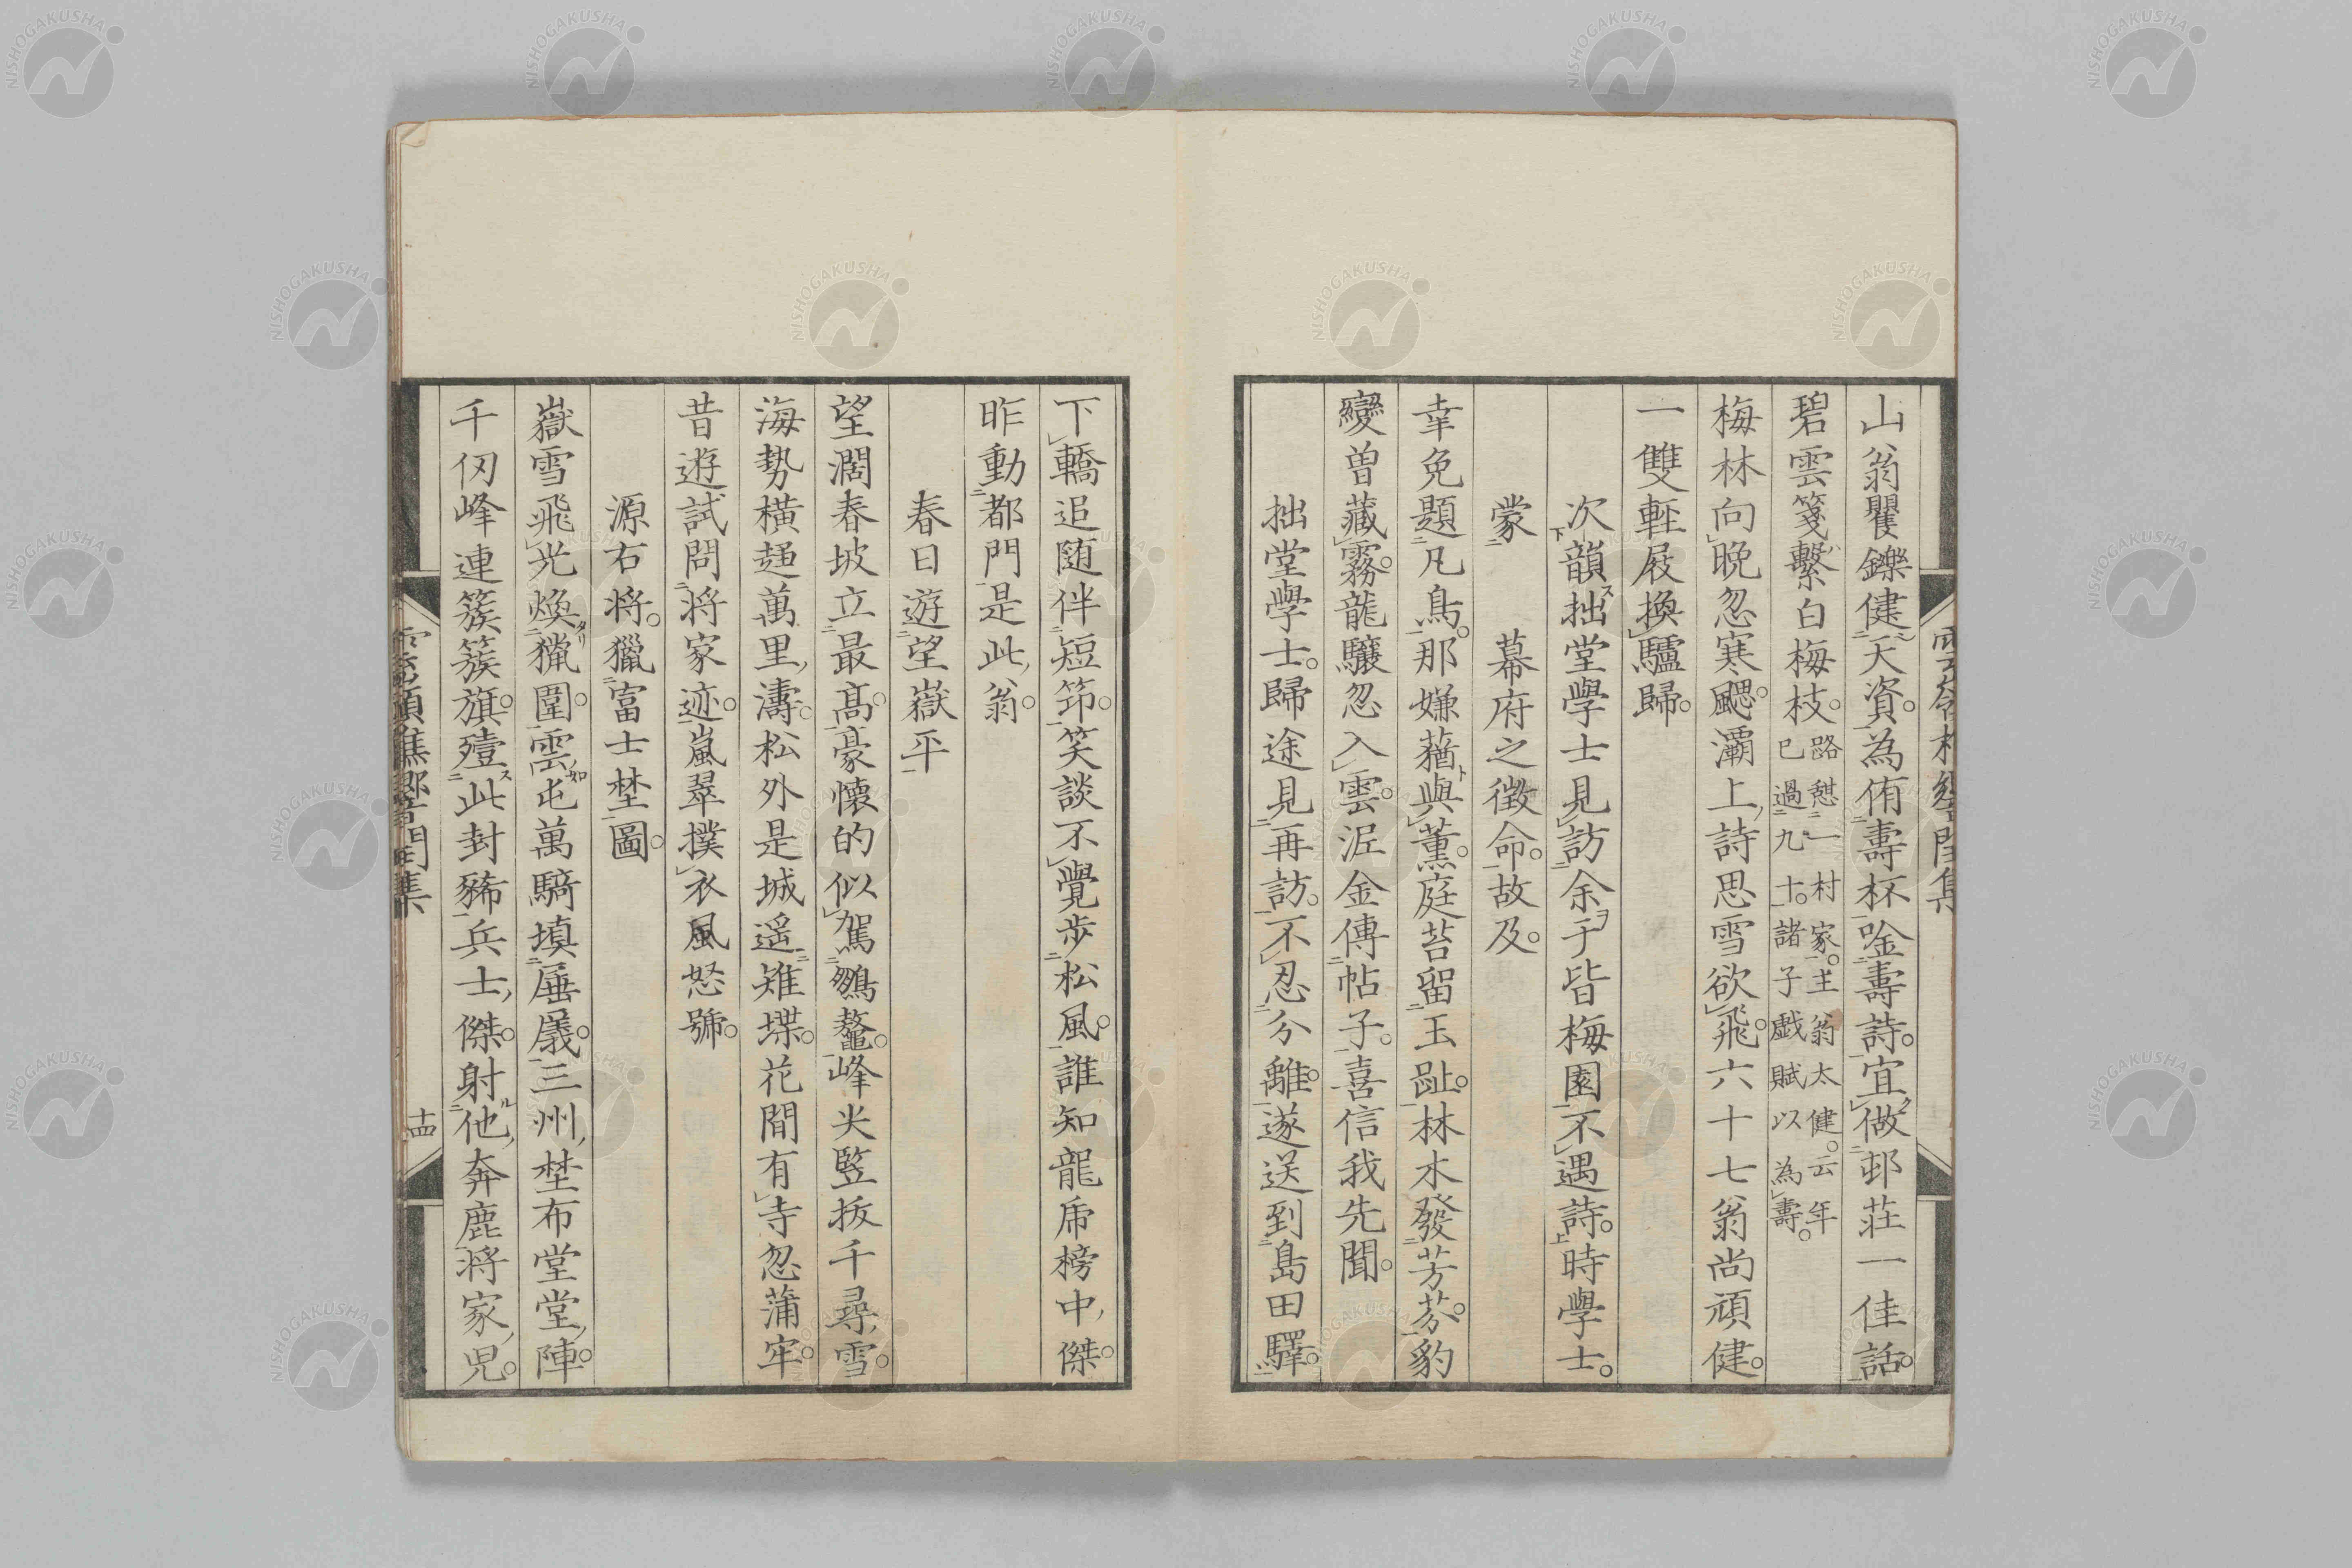 山翁矍鑠健天資。為侑壽杯唫壽詩。宜做邨莊一佳話。
碧雲箋繫白梅枝。路憇一村家。主翁太健。云年
巳過九十。諸子戯賦以為壽。
梅林向晩忽寒颸。灞上詩思雪欲飛。六十七翁尚頑健。
一雙輕屐換驢歸。
次韻拙堂學士見訪余于皆梅園不遇詩。時學士。
蒙 幕府之徵命。故及。
幸免題凡鳥。那嫌蕕與薫。庭苔留玉趾。林木發芳芬。豹
變曽藏霧。龍驤忽入雲。泥金傳帖子。喜信我先聞。
拙堂學士。歸途見再訪。不忍分離。遂送到島田驛。
下轎追随伴短筇。笑談不覺步松風。誰知龍乕榜中傑。
昨動都門是此翁。
春日遊望嶽平
望濶春坡立最髙。豪懷的似駕鷚鼇。峰尖竪拔千尋雪。
海勢橫趨萬里濤。松外是城遥雉堞。花間有寺忽蒲牢。
昔遊試問將家迹。嵐翠撲衣風怒號。
源右將。獵富士埜圖。
嶽雪飛光煥獵圍。雲屯萬騎塡㕒㕒。三州埜布堂堂陣。
千仭峰連簇簇旗。殪此封豨兵士傑。射他奔鹿將家兒。
雲嶺樵響閏集
十四
NISHOGAKUSHA